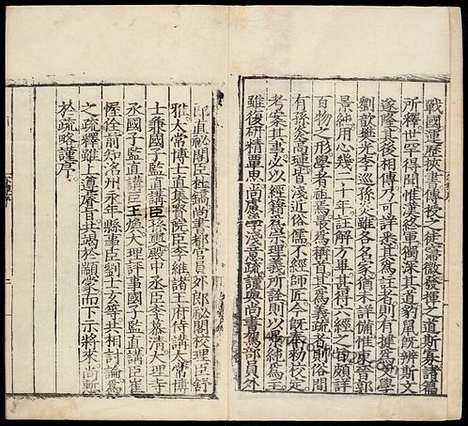 戰國運歷挾書傳授之徒濅微發揮之道斯寡諸篇
所釋世罕得聞惟漢終軍獨深其道豹鼠既辨斯文
遂隆其後相傳乃可詳悉其爲註者則有犍爲文學
劉歆樊光李巡孫炎雖各名家猶未詳備惟東晉郭
景純用心幾二十年註解方畢甚得六經之旨頗詳
百物之形學者祖焉最爲稱首其爲義疏者則俗間
有孫炎高璉皆淺近俗儒不經師匠今既奉勑校定
考案其事必以經籍爲宗理義所詮則以景純爲主
雖復研精覃思尚慮學淺意疏謹與尚書駕部員外
郎直祕閣臣杜鎬尚書都官員外郎祕閣校理臣舒
雅太常博士直集賢院臣李維諸王府侍講太常博
士兼國子監直講臣孫奭殿中丞臣李慕清大理寺
丞國子監直講臣王煥大理評事國子監直講臣崔
偓佺前知洺州永年縣事臣劉士玄等共相討論爲
之疏釋雖上遵睿旨共竭於顓蒙而下示將來尚慙
於疏略謹序